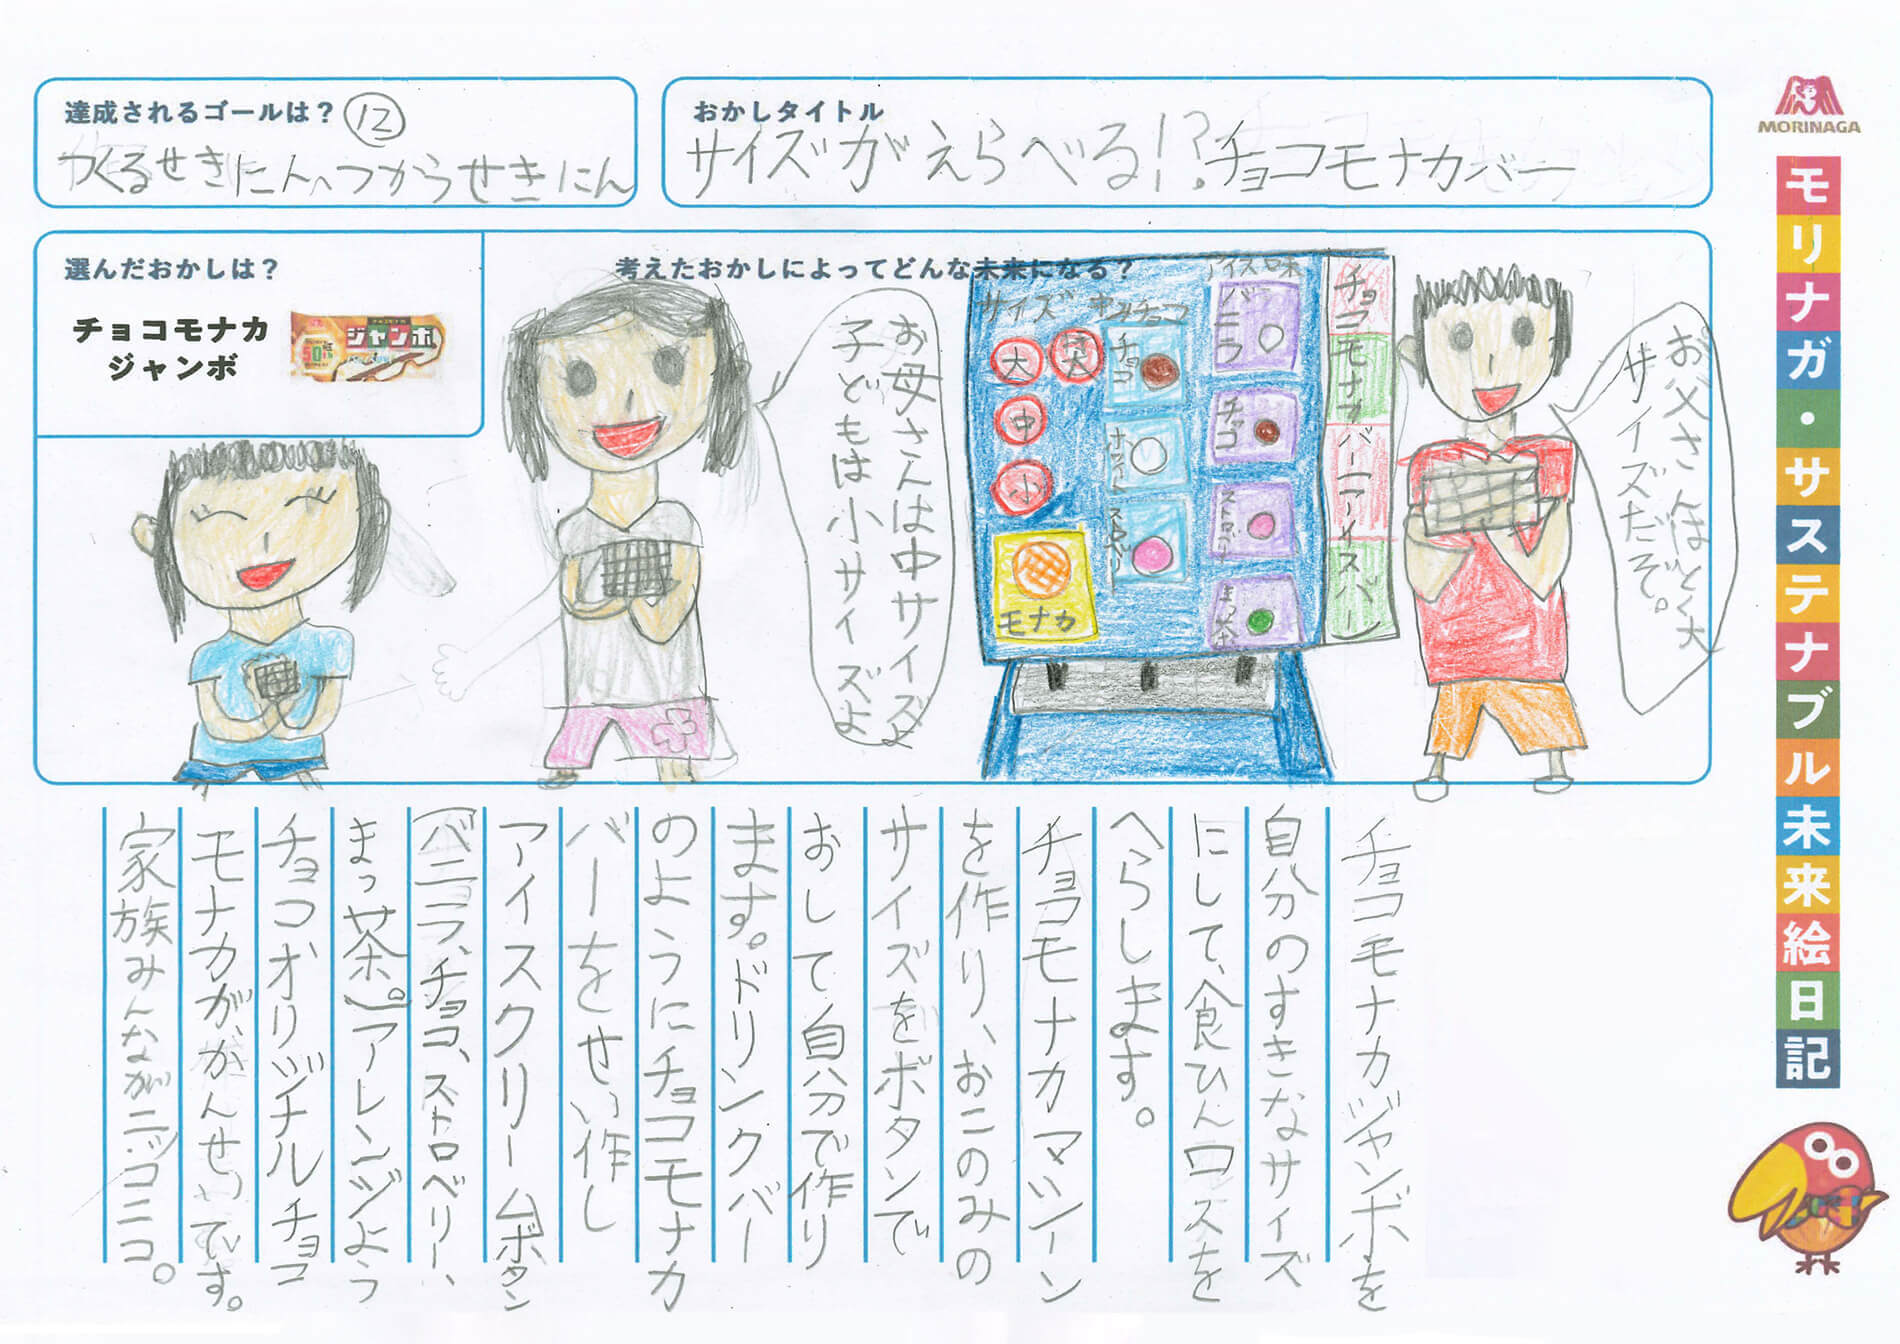 達成されるゴールは？ ⑫
つくるせきにん、つかうせきにん
おかしタイトル
サイズがえらべる!?チョコモナカバー
MORINAGA
モリナガ・サステナブル未来絵日記
選んだおかしは？
チョコモナカ
ジャンボ
ジャンボ
考えたおかしによってどんな未来になる？
お母さんは中サイズよ
子どもは小サイズよ
サイズ
大
特大
中
小
モナカ
チョコ
ストロベリー
アイス味
バニラ
チョコ
ストロベリー
まっ茶
チョコモナカバー（アイスバー）
お父さんはとく大
サイズだぞ。
チョコモナカジャンボを
自分のすきなサイズ
にして、食ひんロスを
へらします。
チョコモナカマシーン
を作り、おこのみの
サイズをボタンで
おして自分で作り
ます。ドリンクバー
のようにチョコモナカ
バーをせい作し
アイスクリームボタン
（バニラ、チョコ、ストロベリー、
まっ茶）。アレンジよう
チョコオリジナルチョコ
モナカがかんせいです。
家族みんながニッコニコ。